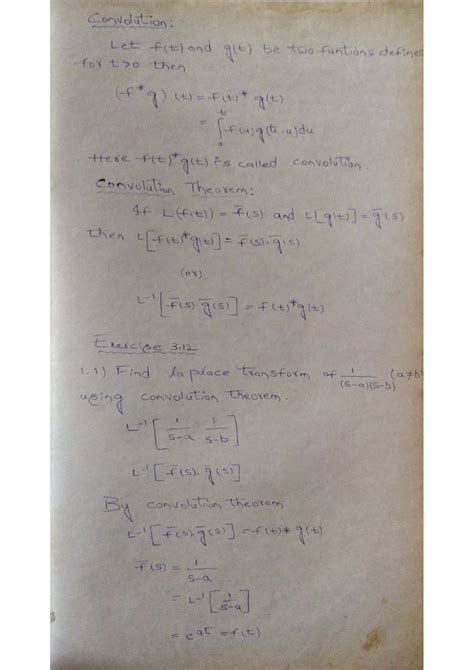 Convolution:
Let f(t) and g(t) be two funtions define
for t>0 then
(f*g)(t) = f(t)*g(t)
= ∫₀ᵗ f(u)g(t-u)du
Here f(t)*g(t) is called convolution.
Convolution Theorem:
If L(f(t)) = f̄(s) and L[g(t)] = ḡ(s)
then L[f(t)*g(t)] = f̄(s).ḡ(s)
(or)
L⁻¹[f̄(s).ḡ(s)] = f(t)*g(t)
Exercise 3.12
1.1) Find laplace transform of 1/(s-a)(s-b) (a≠b
using convolution theorem.
L⁻¹[1/s-a · 1/s-b]
L⁻¹[f̄(s).ḡ(s)]
By convolution theorem
L⁻¹[f̄(s).ḡ(s)] = f(t)*g(t)
f̄(s) = 1/s-a
= L⁻¹[1/s-a]
= eᵃᵗ = f(t)